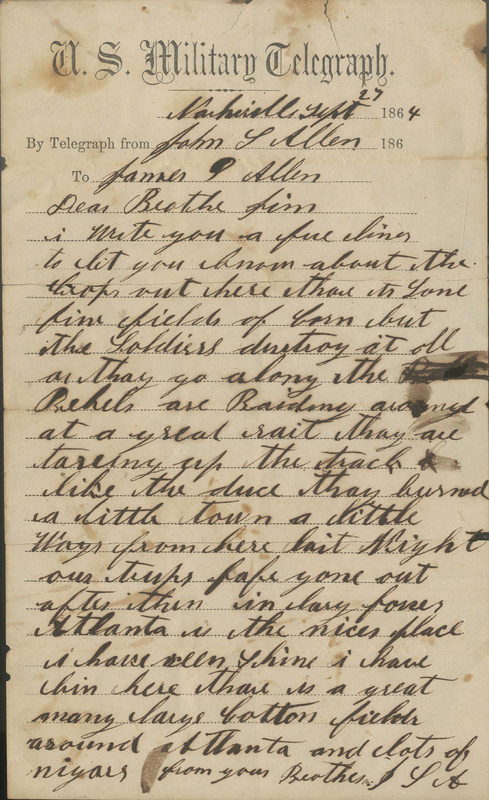 U. S. Military Telegraph.
Nashvills Sept 27 1864
By Telegraph from John S Allen 186
To James P Allen
Dear Brothe Jim
i Write you a fue lines
to let you know about the
Crops out here thare is Some
fine fields of Corn but
the Soldiers destroy it all
as thay go along the
Rebels are Raiding around
at a great rait thay are
tareing up the track
like the duce thay burned
a little town a little
Ways from here last Night
our trups have gone out
after them in larg forses
Atlanta is the nices place
i have seen Shine i have
bin here thare is a great
many large Cotton fields
around atlanta and lots of
nigars from your Brother J S A